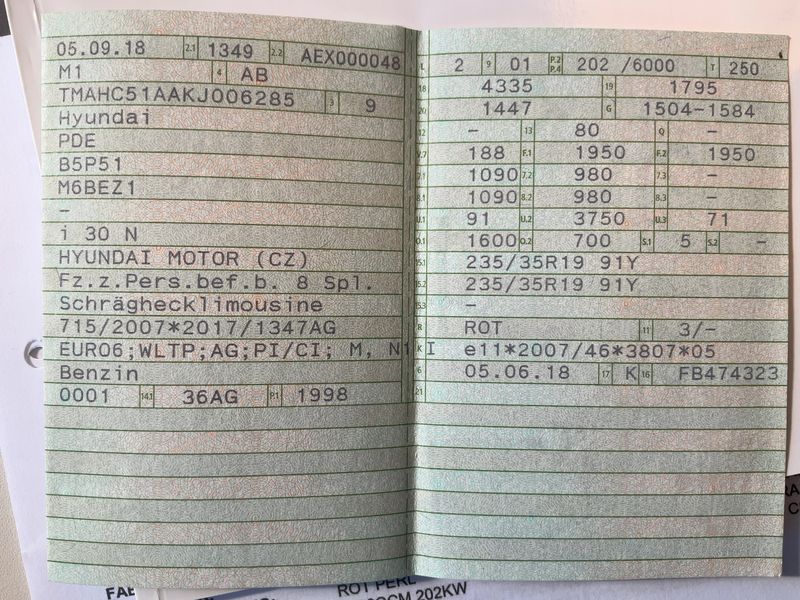 05.09.18 2.1 1349 2.2 AEX000048
M1 4 AB
TMAHC51AAKJ006285 3 9
Hyundai
PDE
B5P51
M6BEZ1
–
i 30 N
HYUNDAI MOTOR (CZ)
Fz.z.Pers.bef.b. 8 Spl.
Schräghecklimousine
715/2007*2017/1347AG
EURO6;WLTP;AG;PI/CI; M, N1 I
Benzin
0001 14.1 36AG P.1 1998
L 2 9 01 P.2 P.4 202 /6000 T 250
18 4335 19 1795
20 1447 G 1504-1584
12 – 13 80 Q –
V.7 188 F.1 1950 F.2 1950
7.1 1090 7.2 980 7.3 –
8.1 1090 8.2 980 8.3 –
U.1 91 U.2 3750 U.3 71
O.1 1600 O.2 700 S.1 5 S.2 –
15.1 235/35R19 91Y
15.2 235/35R19 91Y
15.3 –
R ROT 11 3/-
K e11*2007/46*3807*05
6 05.06.18 17 K 16 FB474323
21
ROT PERL
CCM 202KW